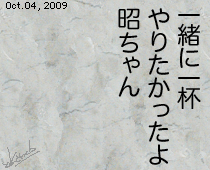 Oct.04, 2009
一緒に一杯
やりたかったよ
昭ちゃん